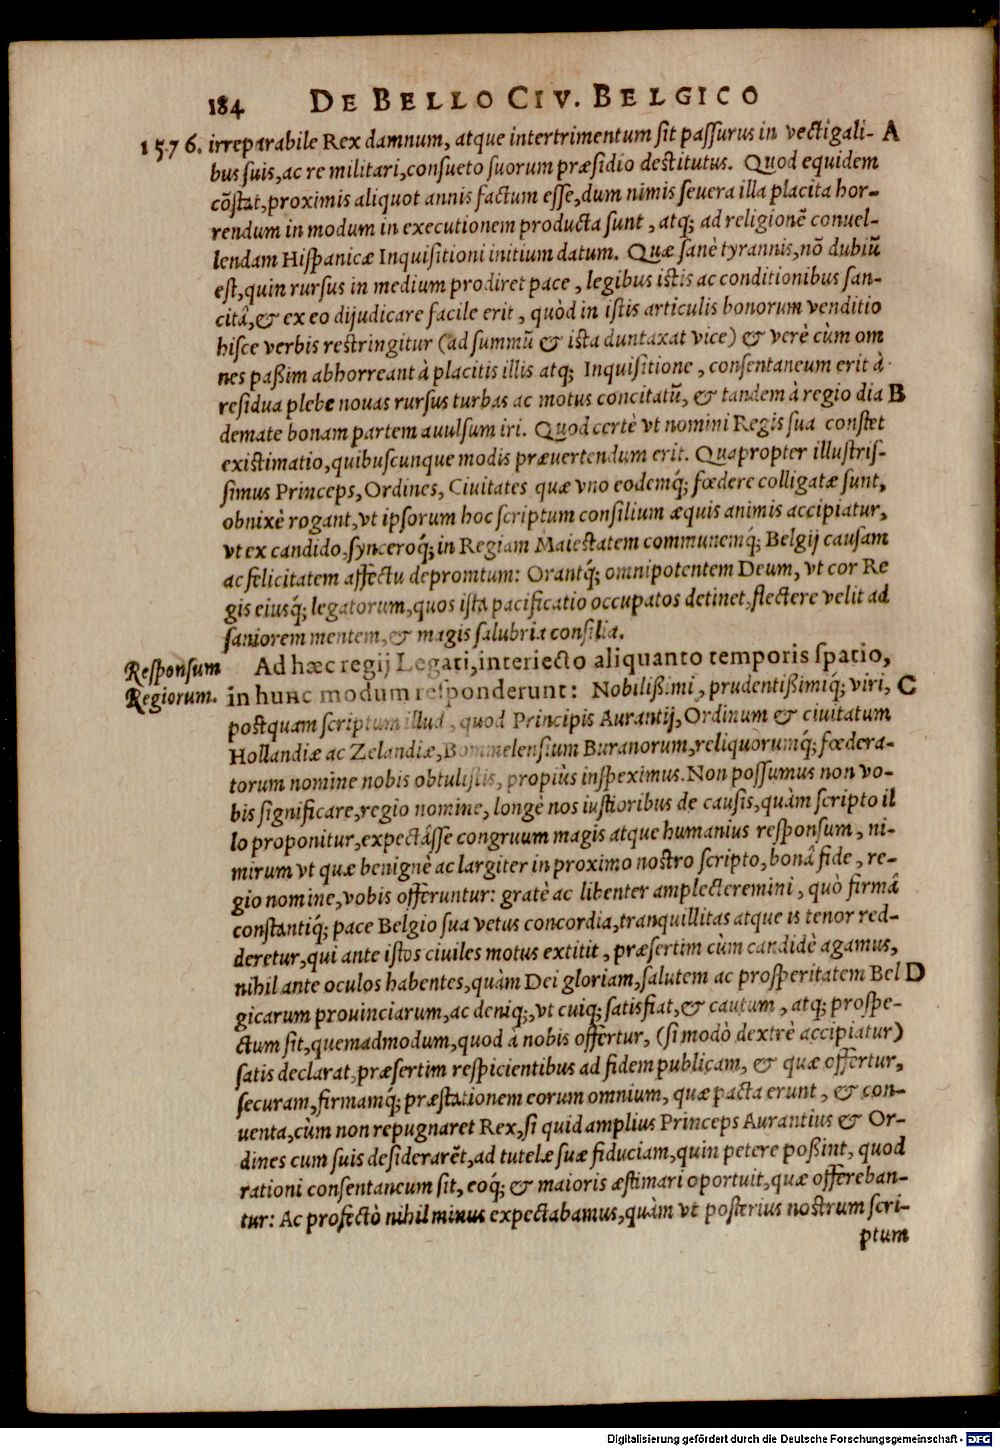 184 DE BELLO CIV. BELGICO
1576. irreparabile Rex damnum, atque intertrimentum sit passurus in vectigali- A
bus suis, ac re militari, consueto suorum præsidio destitutus. Quod equidem
cõstat, proximis aliquot annis factum esse, dum nimis severa illa placita hor-
rendum in modum in executionem producta sunt, atq; ad religionẽ conuel-
lendam Hispanicæ Inquisitioni initium datum. Quæ sanè tyrannis, nõ dubiũ
est, quin rursus in medium prodiret pace, legibus istis ac conditionibus san-
citâ, & ex eo dijudicare facile erit, quòd in istis articulis bonorum venditio
hisce verbis restringitur (ad summũ & ista duntaxat vice) & verè cùm om
nes paßim abhorreant à placitis illis atq; Inquisitione, consentaneum erit à
residua plebe nouas rursus turbas ac motus concitatũ, & tandem à regio dia B
demate bonam partem auulsum iri. Quod certè vt nomini Regis sua constet
existimatio, quibuscunque modis præuertendum erit. Quapropter illustris-
simus Princeps, Ordines, Ciuitates quæ vno eodemq́; fœdere colligatæ sunt,
obnixè rogant, vt ipsorum hoc scriptum consilium æquis animis accipiatur,
vt ex candido, synceroq́; in Regiam Maiestatem communemq́; Belgij causam
ac felicitatem affectu depromtum: Orantq́; omnipotentem Deum, vt cor Re
gis eiusq́; legatorum, quos ista pacificatio occupatos detinet, flectere velit ad
saniorem mentem, & magis salubria consilia.
Responsum Ad hæc regij Legati, interiecto aliquanto temporis spatio,
Regiorum. in hunc modum responderunt: Nobilißimi, prudentißimiq́; viri, C
postquam scriptum illud, quod Principis Aurantij, Ordinum & ciuitatum
Hollandiæ ac Zelandiæ, Bommelensium Buranorum, reliquorumq́; fœdera-
torum nomine nobis obtulistis, propiùs inspeximus. Non possumus non vo-
bis significare, regio nomine, longè nos iustioribus de causis, quàm scripto il
lo proponitur, expectâsse congruum magis atque humanius responsum, ni-
mirum vt quæ benignè ac largiter in proximo nostro scripto, bonâ fide, re-
gio nomine, vobis offeruntur: gratè ac libenter amplecteremini, quò firmâ
constantiq́; pace Belgio sua vetus concordia, tranquillitas atque is tenor red-
deretur, qui ante istos ciuiles motus extitit, præsertim cùm candidè agamus,
nihil ante oculos habentes, quàm Dei gloriam, salutem ac prosperitatem Bel D
gicarum prouinciarum, ac deniq;, vt cuiq; satisfiat, & cautum, atq; prospe-
ctum sit, quemadmodum, quod à nobis offertur, (si modò dextrè accipiatur)
satis declarat, præsertim respicientibus ad fidem publicam, & quæ offertur,
securam, firmamq́; præstationem eorum omnium, quæ pacta erunt, & con-
uenta, cùm non repugnaret Rex, si quid amplius Princeps Aurantius & Or-
dines cum suis desiderarẽt, ad tutelæ suæ fiduciam, quin petere poßint, quod
rationi consentaneum sit, eoq́; & maioris æstimari oportuit, quæ offereban-
tur: Ac profectò nihil minus expectabamus, quàm vt posterius nostrum scri-
ptum
Digitalisierung gefördert durch die Deutsche Forschungsgemeinschaft - DFG